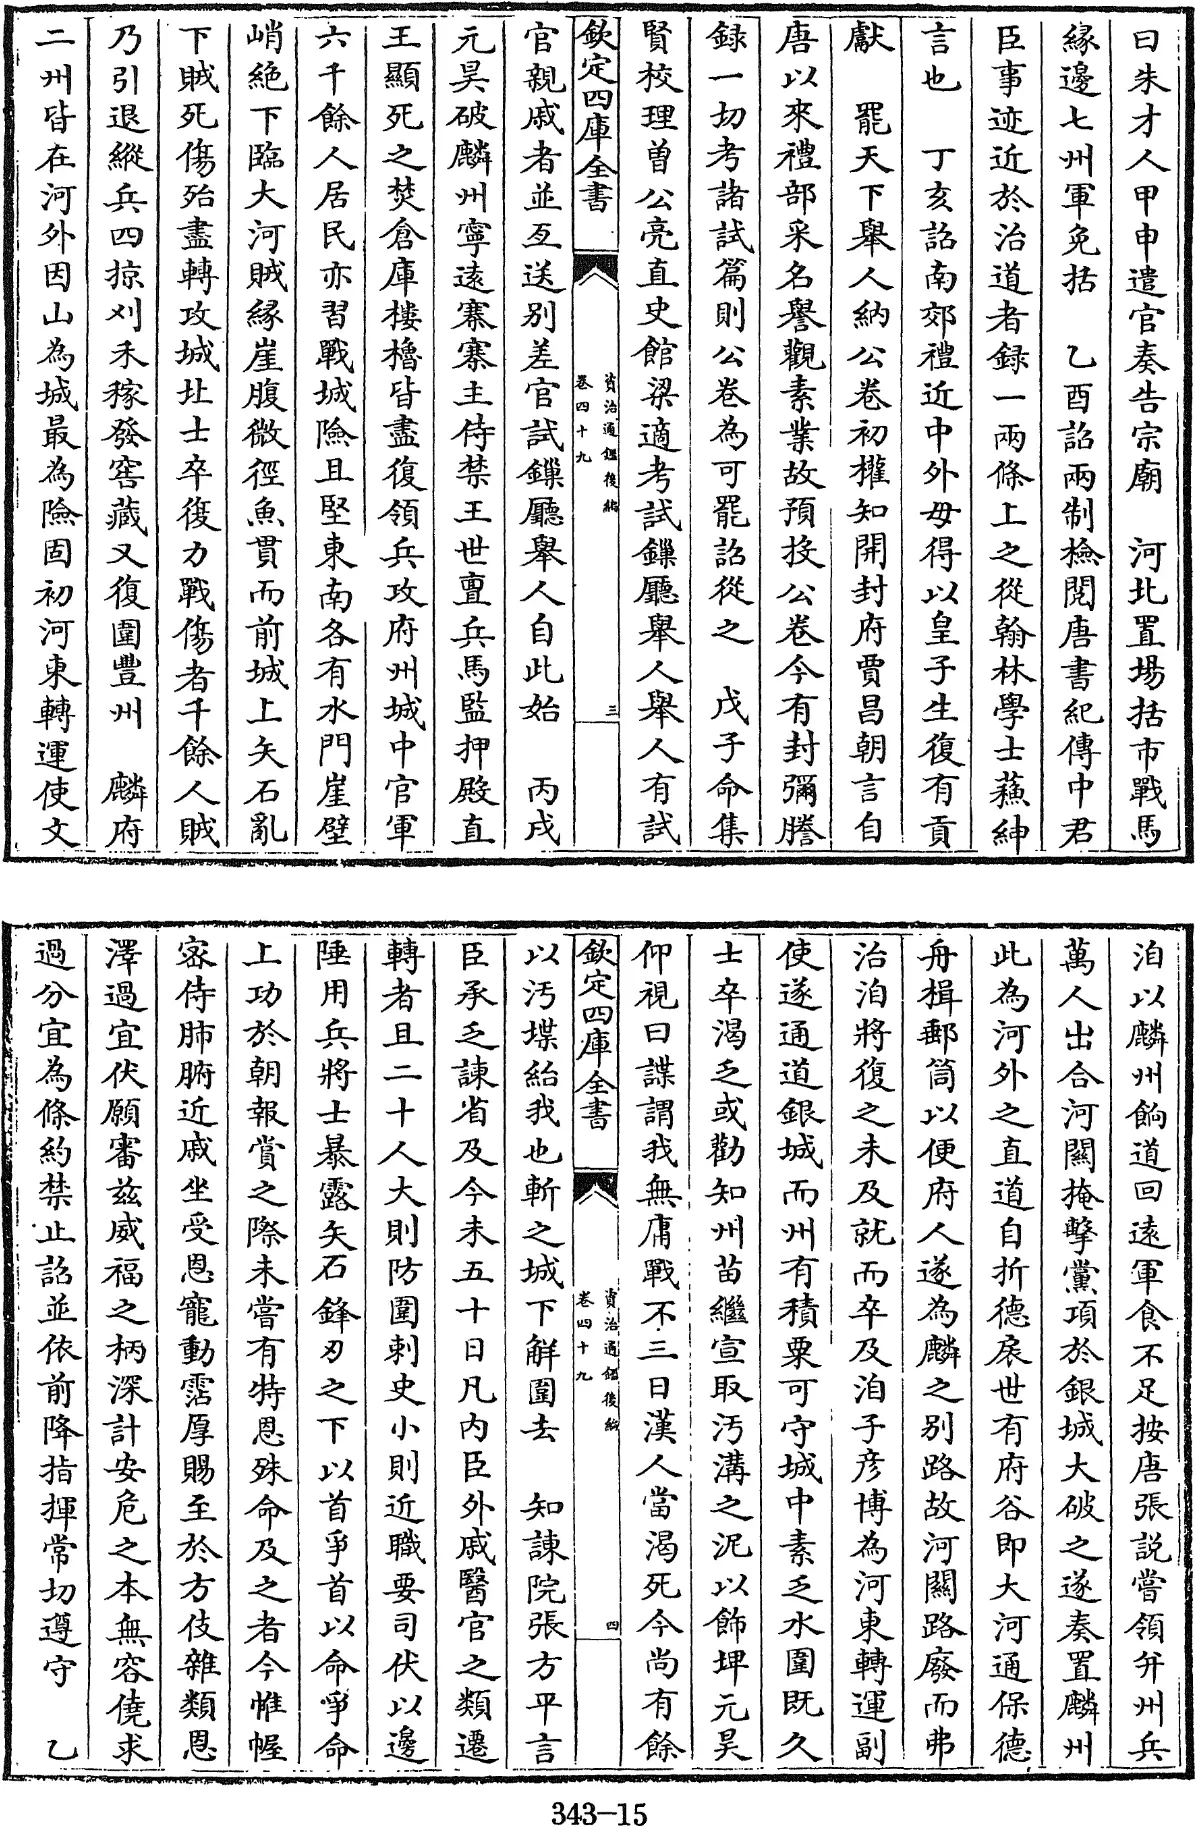 曰朱才人甲申遣官奏告宗廟　河北置場括市戰馬
緣邊七州軍免括　乙酉詔兩制檢閱唐書紀傳中君
臣事迹近於治道者錄一兩條上之從翰林學士蘓紳
言也　丁亥詔南郊禮近中外毋得以皇子生復有貢
獻　罷天下舉人納公卷初權知開封府賈昌朝言自
唐以來禮部采名譽觀素業故預投公卷今有封彌謄
録一切考諸試篇則公卷為可罷詔從之　戊子命集
賢校理曽公亮直史館梁適考試鏁廳舉人舉人有試
欽定四庫全書
資治通鑑後編
卷四十九
三
官親戚者並互送別差官試鏁廳舉人自此始　丙戌
元昊破麟州寧遠寨寨主侍禁王世亶兵馬監押殿直
王顯死之焚倉庫樓櫓皆盡復領兵攻府州城中官軍
六千餘人居民亦習戰城險且堅東南各有水門崖壁
峭絶下臨大河賊緣崖腹微徑魚貫而前城上矢石亂
下賊死傷殆盡轉攻城北士卒復力戰傷者千餘人賊
乃引退縱兵四掠刈禾稼發窖藏又復圍豐州　麟府
二州皆在河外因山為城最為險固初河東轉運使文
洎以麟州餉道回遠軍食不足按唐張說嘗領并州兵
萬人出合河關掩擊黨項於銀城大破之遂奏置麟州
此為河外之直道自折德扆世有府谷即大河通保德
舟楫郵筒以便府人遂為麟之別路故河關路廢而弗
治洎將復之未及就而卒及洎子彦博為河東轉運副
使遂通道銀城而州有積粟可守城中素乏水圍既久
士卒渴乏或勸知州苗繼宣取汚溝之泥以飾埤元昊
仰視曰諜謂我無庸戰不三日漢人當渴死今尚有餘
欽定四庫全書
資治通鑑後編
卷四十九
四
以汚堞紿我也斬之城下解圍去　知諫院張方平言
臣承乏諫省及今未五十日凡内臣外戚醫官之類遷
轉者且二十人大則防圍刺史小則近職要司伏以邊
陲用兵將士暴露矢石鋒刃之下以首爭首以命爭命
上功於朝報賞之際未嘗有特恩殊命及之者今帷幄
宻侍肺腑近戚坐受恩寵動霑厚賜至於方伎雜類恩
澤過宜伏願審兹威福之柄深計安危之本無容僥求
過分宜為條約禁止詔並依前降指揮常切遵守　乙
343-15